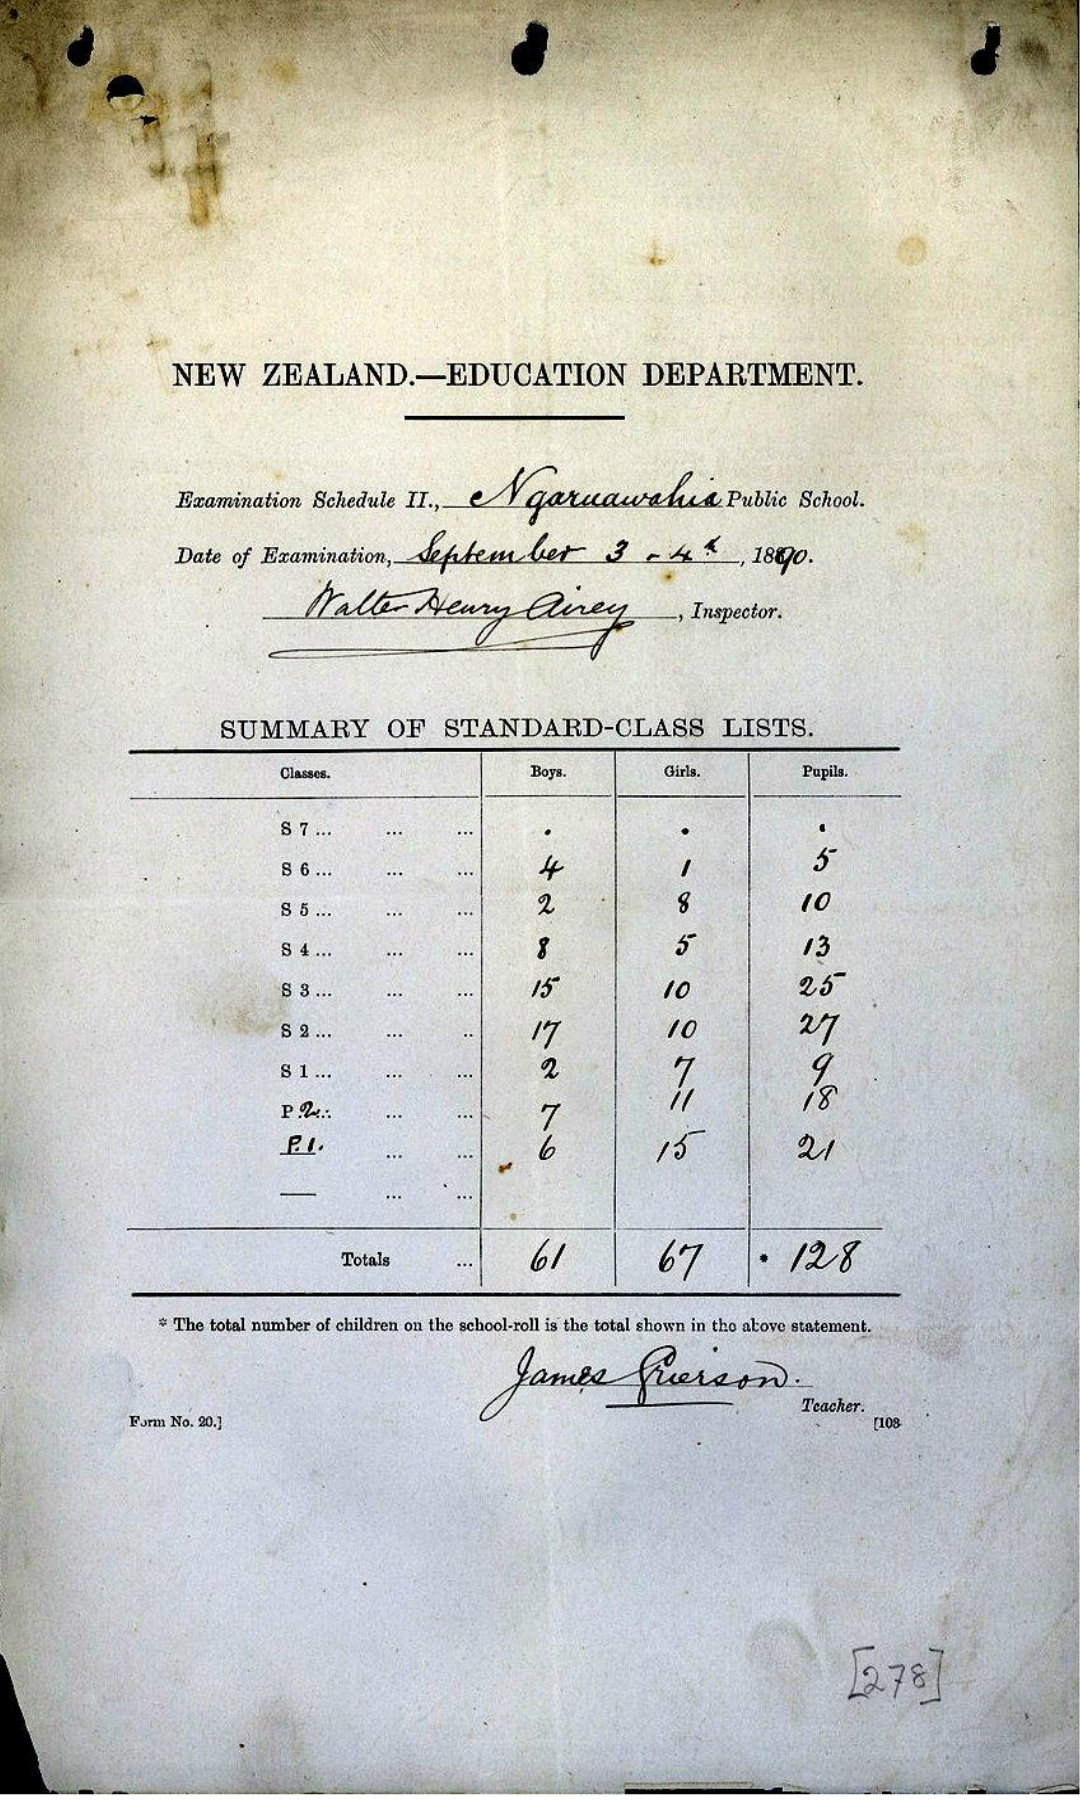 NEW ZEALAND.—EDUCATION DEPARTMENT.
Examination Schedule II., Ngaruawahia Public School.
Date of Examination, September 3 - 4th, 1890.
Walter Henry Airey, Inspector.
SUMMARY OF STANDARD-CLASS LISTS.
Classes. Boys. Girls. Pupils.
S 7... ... ... . . .
S 6... ... ... 4 1 5
S 5... ... ... 2 8 10
S 4... ... ... 8 5 13
S 3... ... ... 15 10 25
S 2... ... .. 17 10 27
S 1... ... ... 2 7 9
P.2... ... ... 7 11 18
P.1. ... ... 6 15 21
— ... ...
Totals ... 61 67 * 128
* The total number of children on the school-roll is the total shown in the above statement.
James Grierson.
Teacher.
Form No. 20.] [108
[278]